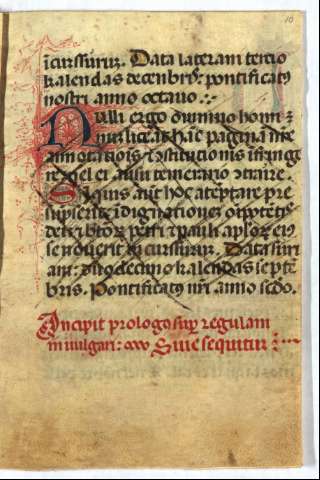 10
icurssurum. Data laterani tercio
kalendas decenbris: pontificatus
nostri anno octavo :~
Nulli ergo omnino homi
num liceat hac paginam nre
annotationis & constitucionis infringe
re vel ei ausu temerario contraire.
Siquis autem hoc atemptare pre
supserit idignationem omnipotentis
dei & btorum petri & pauli apostolorum eius
se noverit incurssurum. Data
ani: kalendas septe
bris. Pontificatus nri anno sedo.
Incipit prologus sup regulam
in vulgari: Sive sequitur